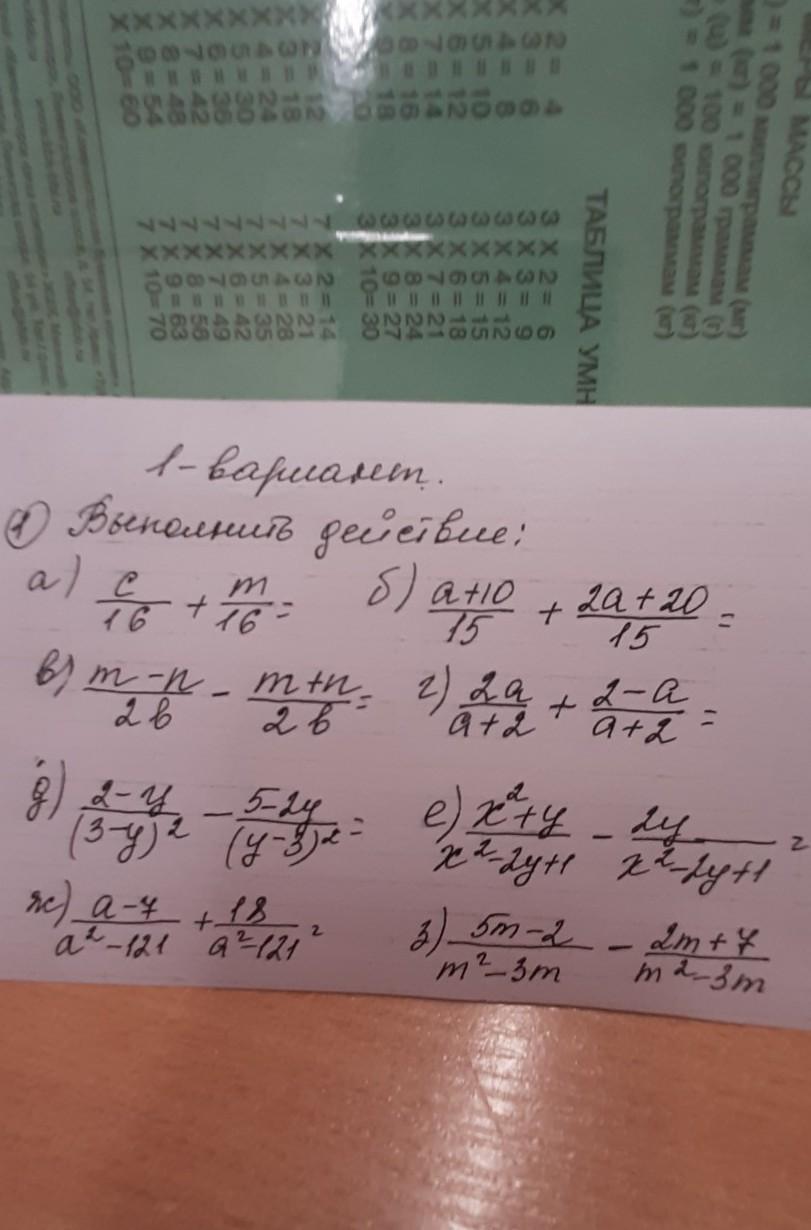 МАССЫ
) = 1 000 миллиграммам (мг)
(кг) = 1 000 граммам (г)
(ц) = 100 килограммам (кг)
) = 1 000 килограммам (кг)
ТАБЛИЦА УМН
X 2 = 4
X 3 = 6
X 4 = 8
X 5 = 10
X 6 = 12
X 7 = 14
X 8 = 16
X 9 = 18
3 X 2 = 6
3 X 3 = 9
3 X 4 = 12
3 X 5 = 15
3 X 6 = 18
3 X 7 = 21
3 X 8 = 24
3 X 9 = 27
3 X 10= 30
X 2 = 12
X 3 = 18
X 4 = 24
X 5 = 30
X 6 = 36
X 7 = 42
X 8 = 48
X 9 = 54
X 10= 60
7 X 2 = 14
7 X 3 = 21
7 X 4 = 28
7 X 5 = 35
7 X 6 = 42
7 X 7 = 49
7 X 8 = 56
7 X 9 = 63
7 X 10= 70
1-вариант.
1 Выполнить действие:
а) c/16 + m/16 = б) a+10/15 + 2a+20/15 =
в) m-n/2b - m+n/2b = г) 2a/a+2 + 2-a/a+2 =
д) 2-y/(3-y)² - 5-2y/(y-3)² = е) x²+y/x²-2y+1 - 2y/x²-2y+1 =
ж) a-7/a²-121 + 18/a²-121 = з) 5m-2/m²-3m - 2m+7/m²-3m